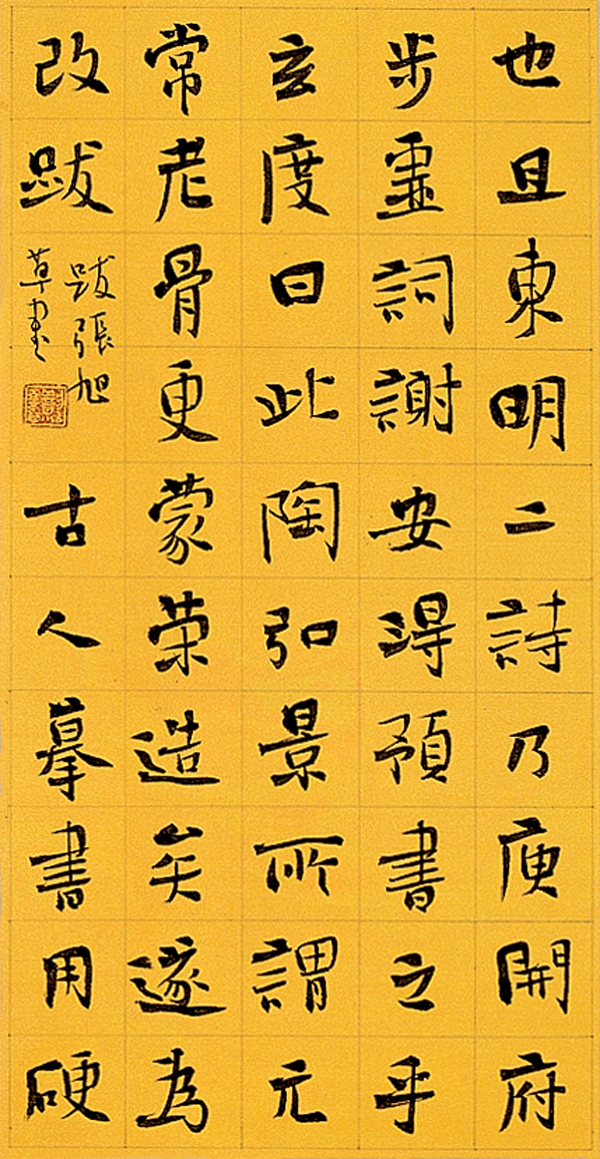 也且東明二詩乃庾開府
步虛詞謝安得預書之乎
玄度曰此陶弘景所謂元
常老骨更蒙荣造矣遂為
改跋
跋張旭
草書
古人摹書用硬